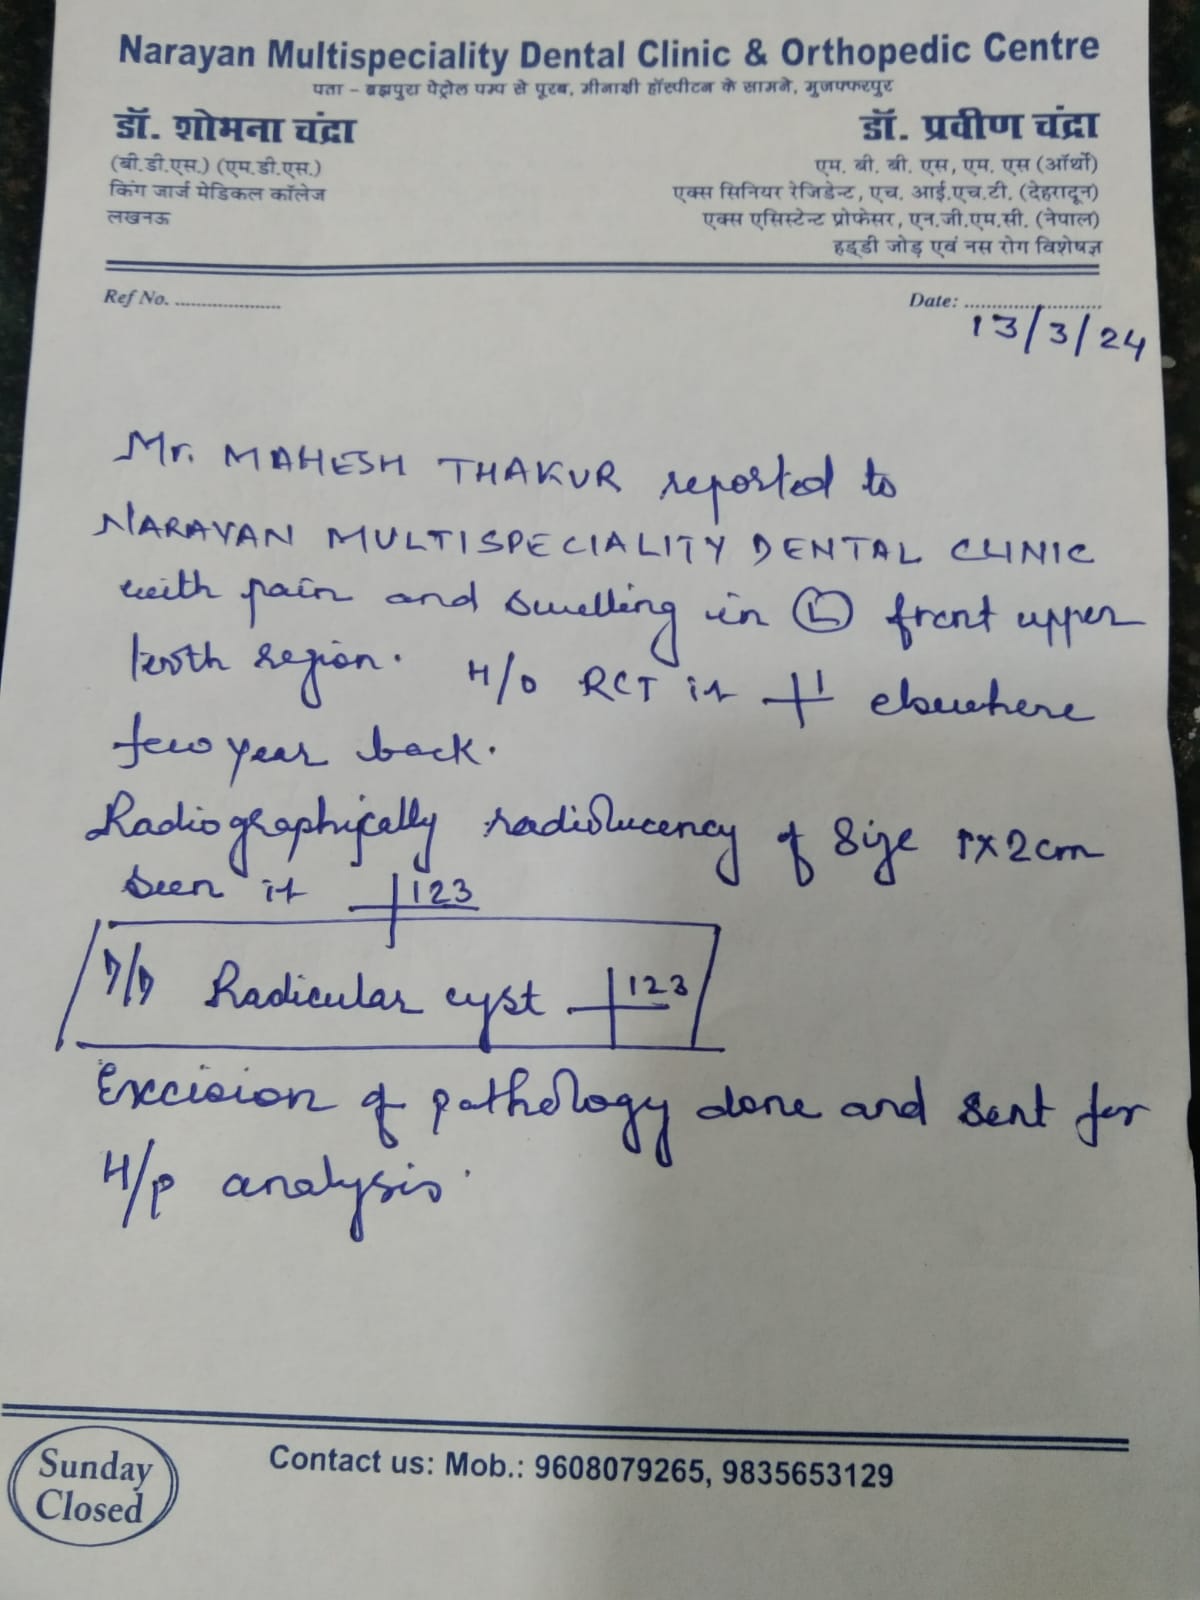 Narayan Multispeciality Dental Clinic & Orthopedic Centre
पता – ब्रह्मपुरा पेट्रोल पम्प से पूरब, मीनाक्षी हॉस्पीटन के सामने, मुजफ्फरपुर
डॉ. शोभना चंद्रा
(बी.डी.एस.) (एम.डी.एस.)
किंग जार्ज मेडिकल कॉलेज
लखनऊ
डॉ. प्रवीण चंद्रा
एम. बी. बी. एस, एम. एस (ऑर्थो)
एक्स सिनियर रेजिडेन्ट, एच. आई.एच.टी. (देहरादून)
एक्स एसिस्टेन्ट प्रोफेसर, एन.जी.एम.सी. (नेपाल)
हड्डी जोड़ एवं नस रोग विशेषज्ञ
Ref No. ....................
Date: ..........................
13/3/24
Mr. MAHESH THAKUR reported to
NARAYAN MULTISPECIALITY DENTAL CLINIC
with pain and swelling in (L) front upper
teeth region. H/O RCT it 1 elsewhere
few year back.
Radiographically radiolucency of size 1x2cm
seen it 123
D/D Radicular cyst 123
Excision of pathology done and sent for
H/P analysis.
Sunday
Closed
Contact us: Mob.: 9608079265, 9835653129